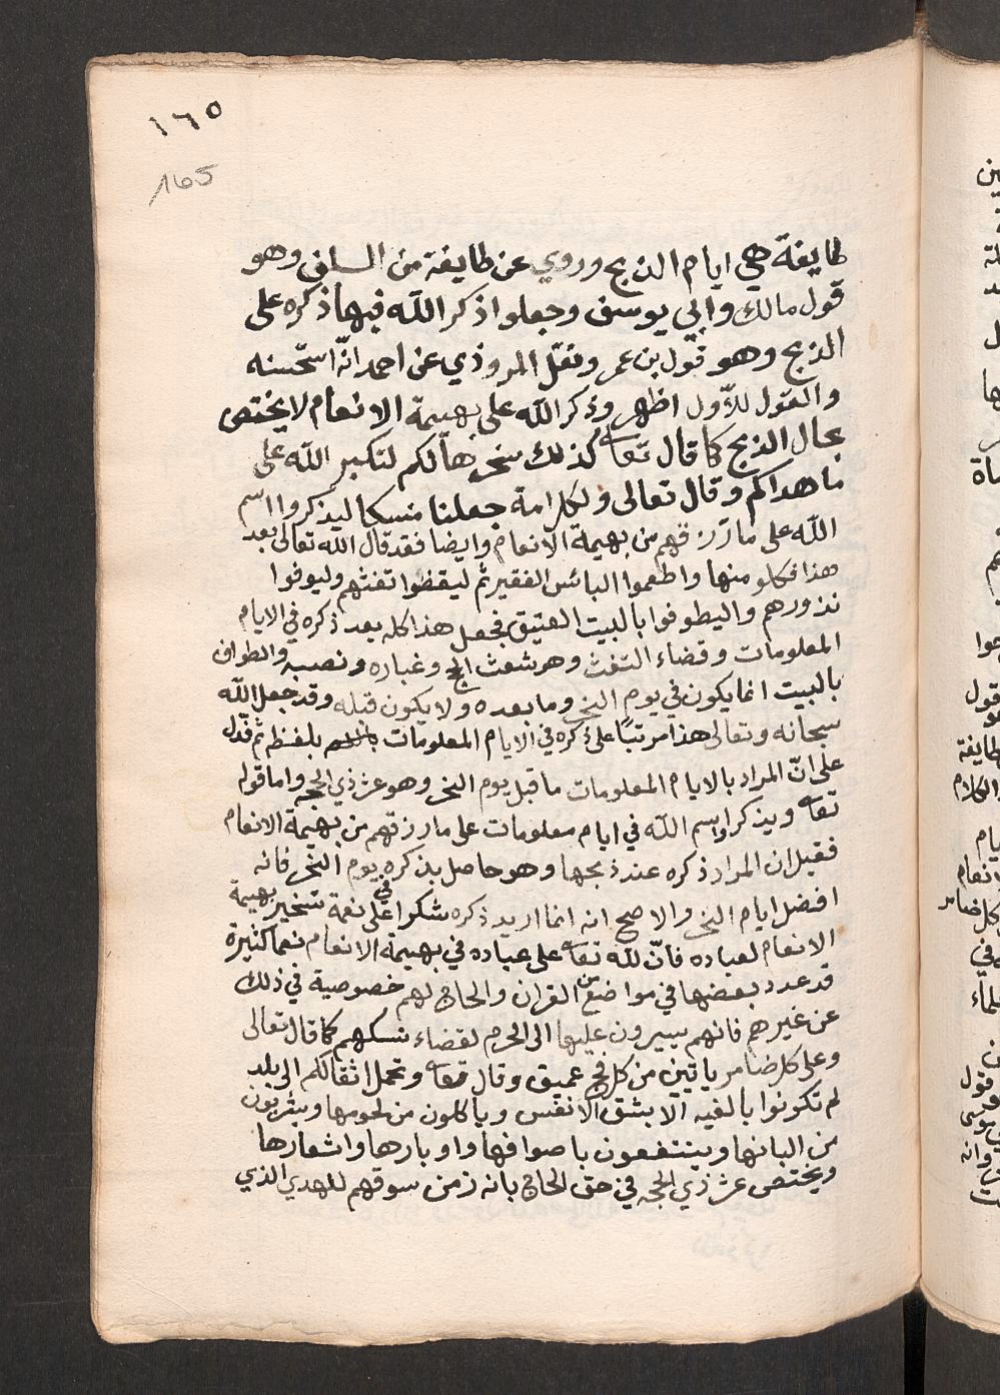 ١٦٥
165
طايفة هي ايام الذبح وروي عن طايفة من السلف وهو
قول مالك وابي يوسف وجعلوا ذكر الله فيها ذكره على
الذبح وهو قول بن عمر ونقل المروذي عن احمد انّه استحسنه
والقول للأول اظهر وذكر الله على بهيمة الانعام لا يختص
بحال الذبح كما قال تعا كذلك سخرها لكم لتكبر الله على
ما هداكم وقال تعالى ولكل امة جعلنا منسكا ليذكروا اسم
الله على ما رزقهم من بهيمة الانعام وايضا فقد قال الله تعالى بعد
هذا فكلو منها واطعموا البائس الفقير ثم ليقضوا تفثهم وليوفوا
نذورهم واليطوفوا بالبيت العتيق فجعل هذا كله بعد ذكره في الايام
المعلومات وقضاء التفث وهو شعث الحج وغباره ونصبه والطواف
بالبيت انما يكون في يوم النحر وما بعده ولا يكون قبله وقد جعل الله
سبحانه وتعالى هذا مرتبًا على ذكره في الايام المعلومات بلفظ ثم فدل
على انّ المراد بالايام المعلومات ما قبل يوم النحر وهو عشر ذي الحجه واما قوله
تعا ويذكروا اسم الله في ايام معلومات على ما رزقهم من بهيمة الانعام
فقيل ان المراد ذكره عند ذبحها وهو حاصل بذكره يوم النحر فانه
افضل ايام النحر والاصح انه انما اريد ذكره شكرا على نعمة تسخير بهيمة
الانعام لعباده فانّ لله تعا على عباده في بهيمة الانعام نعما كثيرة
قد عدد بعضها في مواضع من القران والحاج لهم خصوصية في ذلك
عن غيرهم فانهم يسيرون عليها الى الحرم لقضاء نسكهم كما قال تعالى
وعلى كل ضامر ياتين من كل فج عميق وقال تعا وتحمل اثقالكم الى بلد
لم تكونوا بالغيه الا بشق الانفس وياكلون من لحومها ويشربون
من البانها وينتفعون باصوافها واوبارها واشعارها
ويختص عشر ذي الحجه في حق الحاج بانه زمن سوقهم للهدي الذي